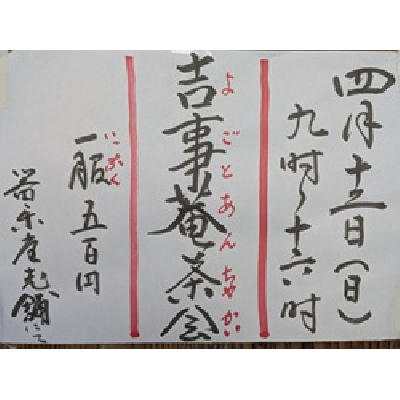 四月十三日(日)
九時～十六時
よごとあんちゃかい
吉事菴茶会
いっぷく
一服 五百円
老舗にて